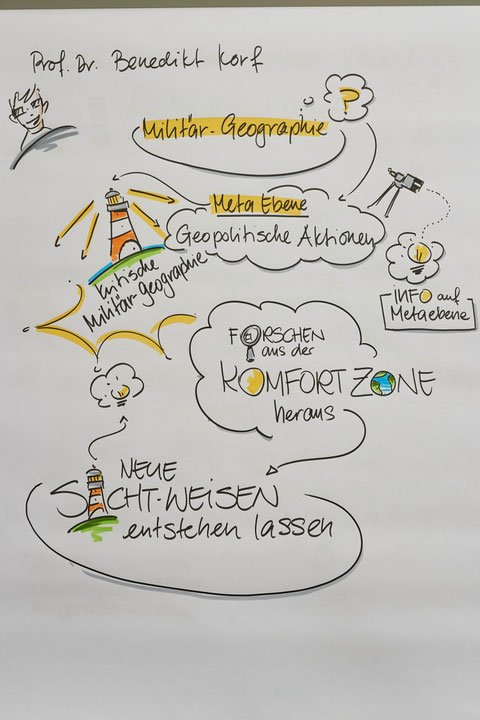 Prof. Dr. Benedikt Korf
?
Militär-Geographie
Meta Ebene
Geopolitische Aktionen
kritische
Militär-geographie
INFO auf
Metaebene
FORSCHEN
aus der
KOMFORTZONE
heraus
NEUE
SICHT-WEISEN
entstehen lassen